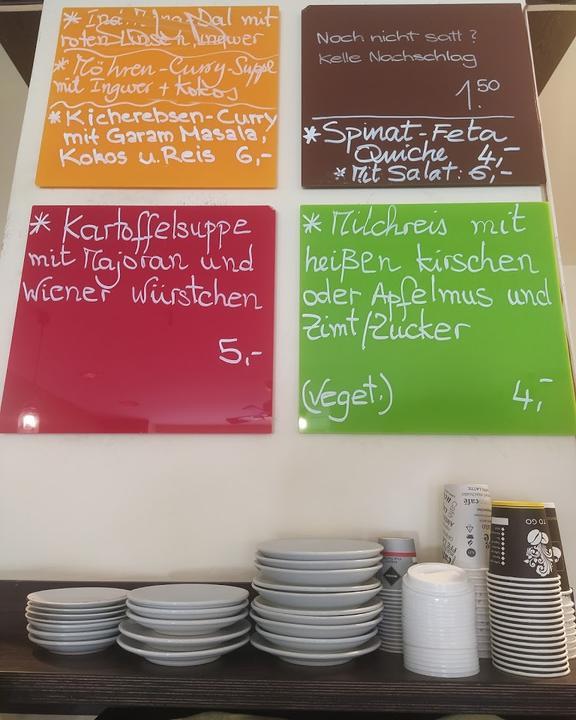 Dal mit
roten Linsen, Ingwer
* Möhren-Curry-Suppe
mit Ingwer + Kokos
* Kichererbsen-Curry
mit Garam Masala,
Kokos u. Reis 6,-
Noch nicht satt?
Kelle Nachschlag
1.50
* Spinat-Feta
Quiche 4,-
* Mit Salat: 6,-
* Kartoffelsuppe
mit Majoran und
Wiener Würstchen
5,-
* Milchreis mit
heißen Kirschen
oder Apfelmus und
Zimt/Zucker
(veget.) 4,-
TO GO